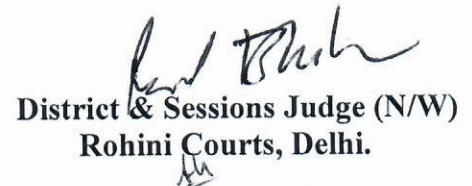 District & Sessions Judge (N/W)
Rohini Courts, Delhi.